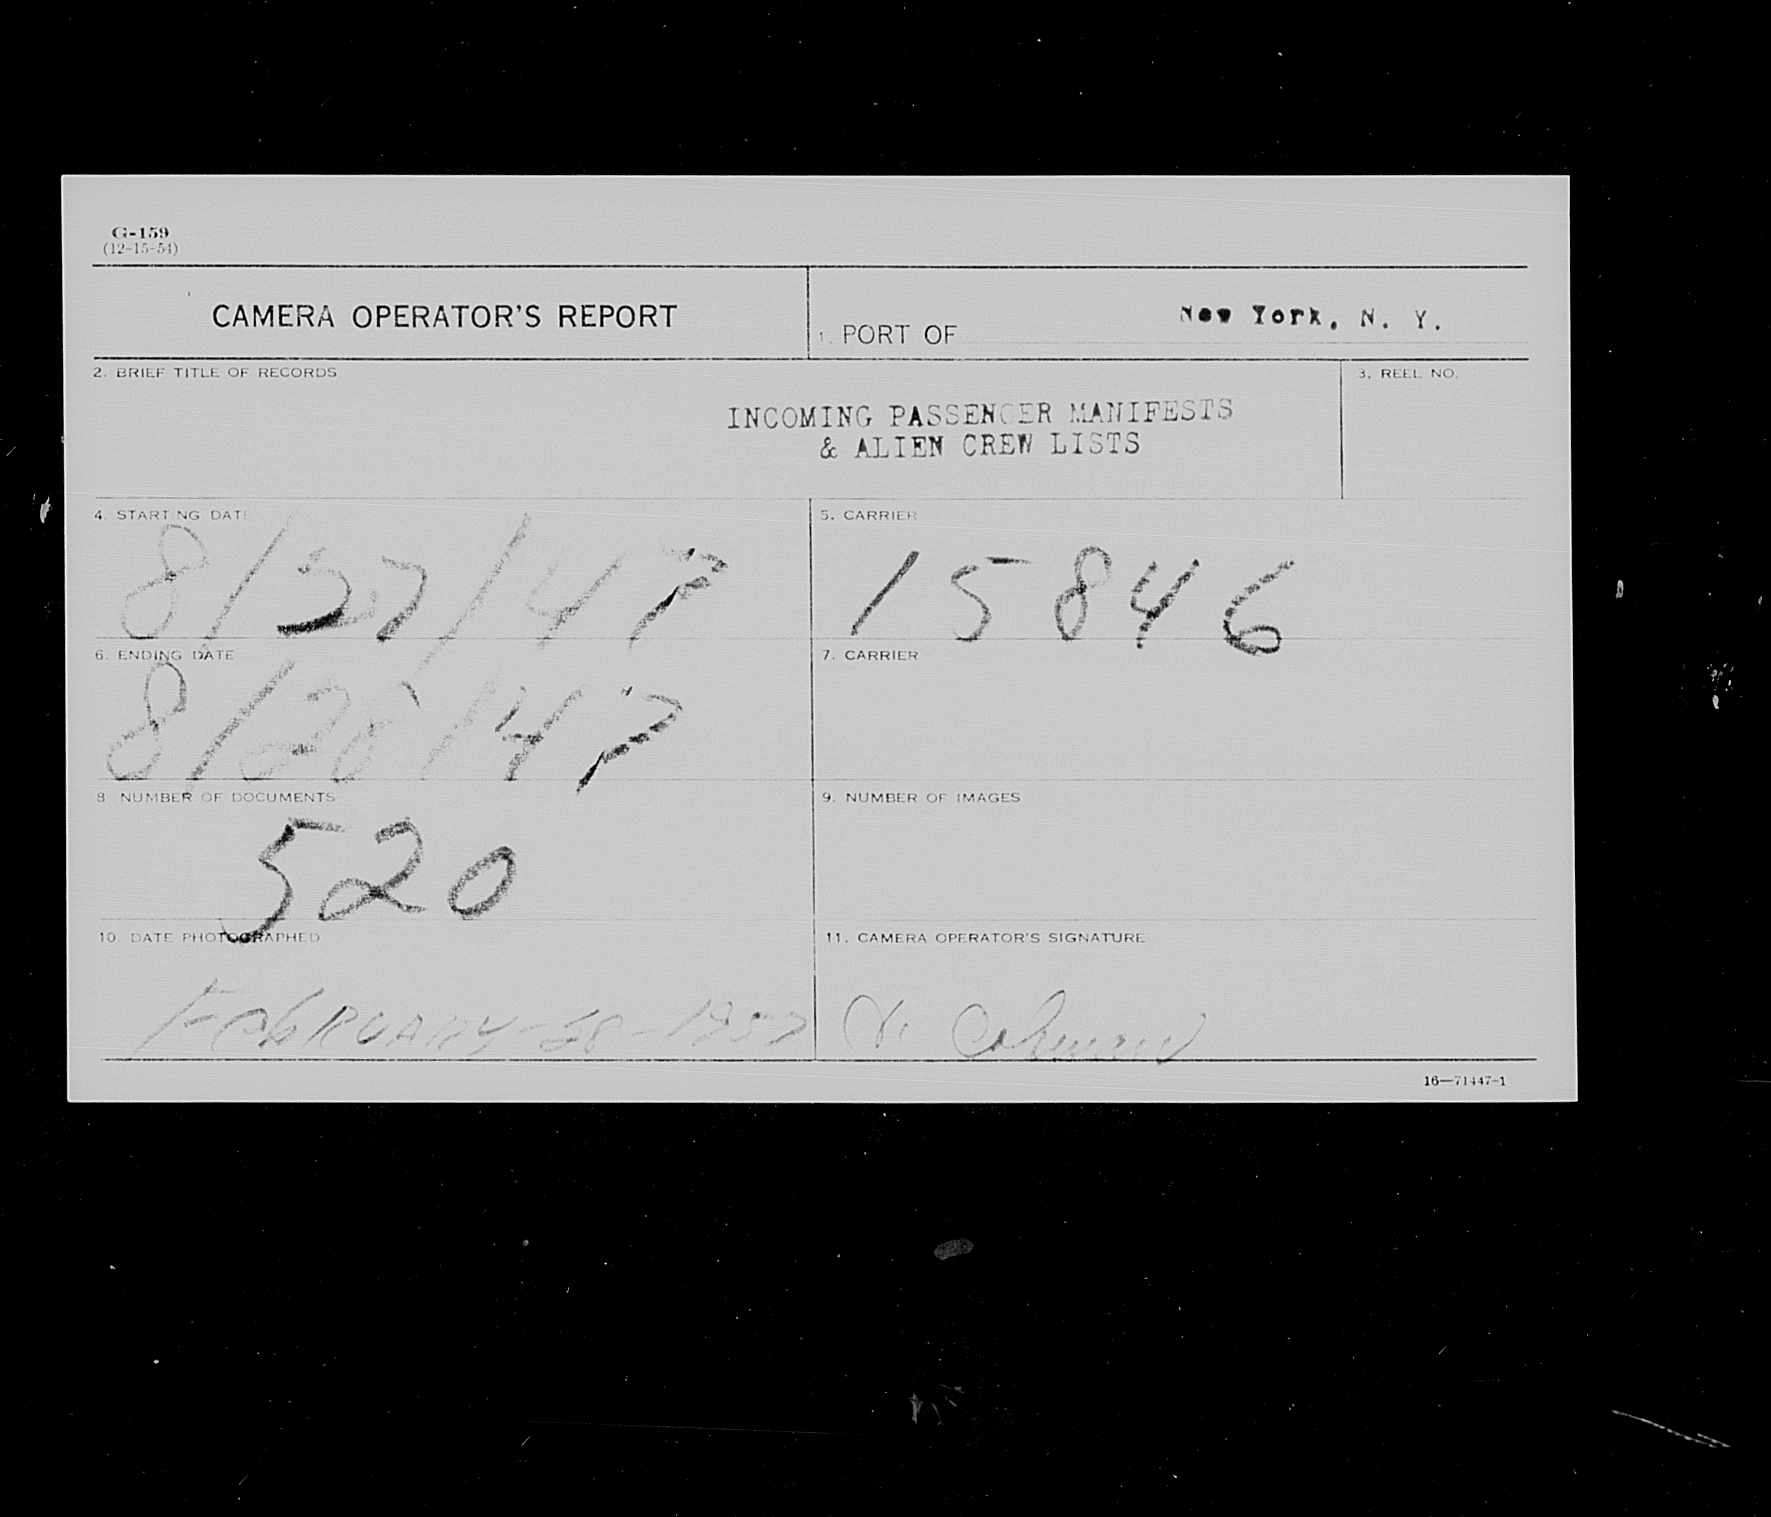 G-159
(12-15-54)
CAMERA OPERATOR'S REPORT
1. PORT OF New York, N. Y.
2. BRIEF TITLE OF RECORDS
3. REEL NO.
INCOMING PASSENGER MANIFESTS
& ALIEN CREW LISTS
4. STARTING DATE
8/27/47
5. CARRIER
15846
6. ENDING DATE
8/28/47
7. CARRIER
8 NUMBER OF DOCUMENTS
520
9. NUMBER OF IMAGES
10. DATE PHOTOGRAPHED
FebRUARY-28-1957
11. CAMERA OPERATOR'S SIGNATURE
16—71447-1